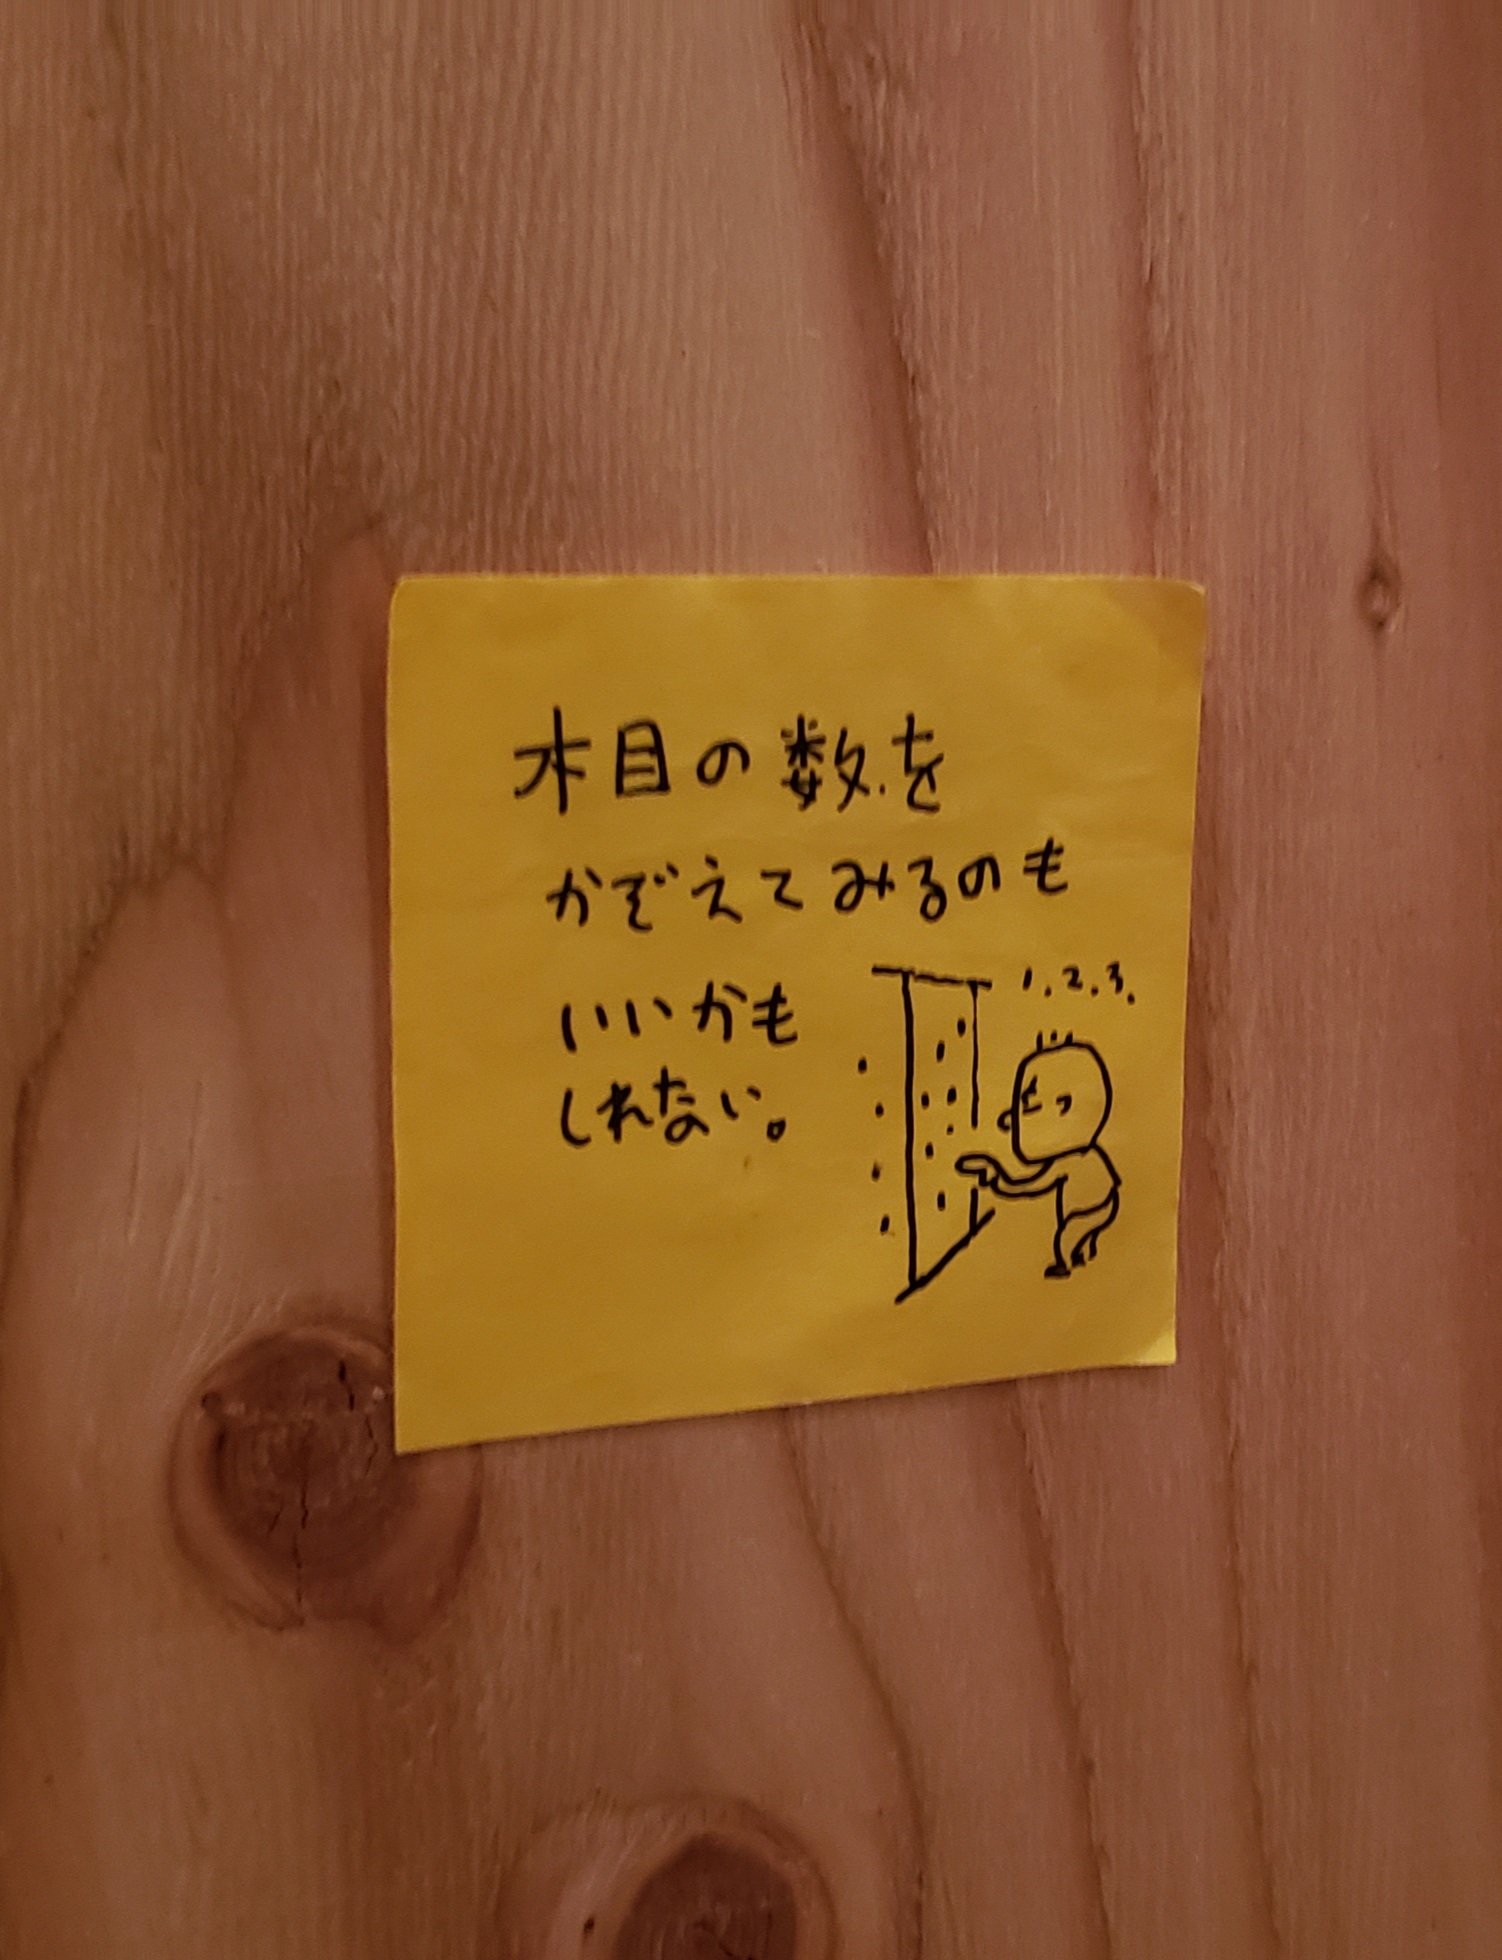 木目の数を
かぞえてみるのも
いいかも
しれない。
1.2.3.